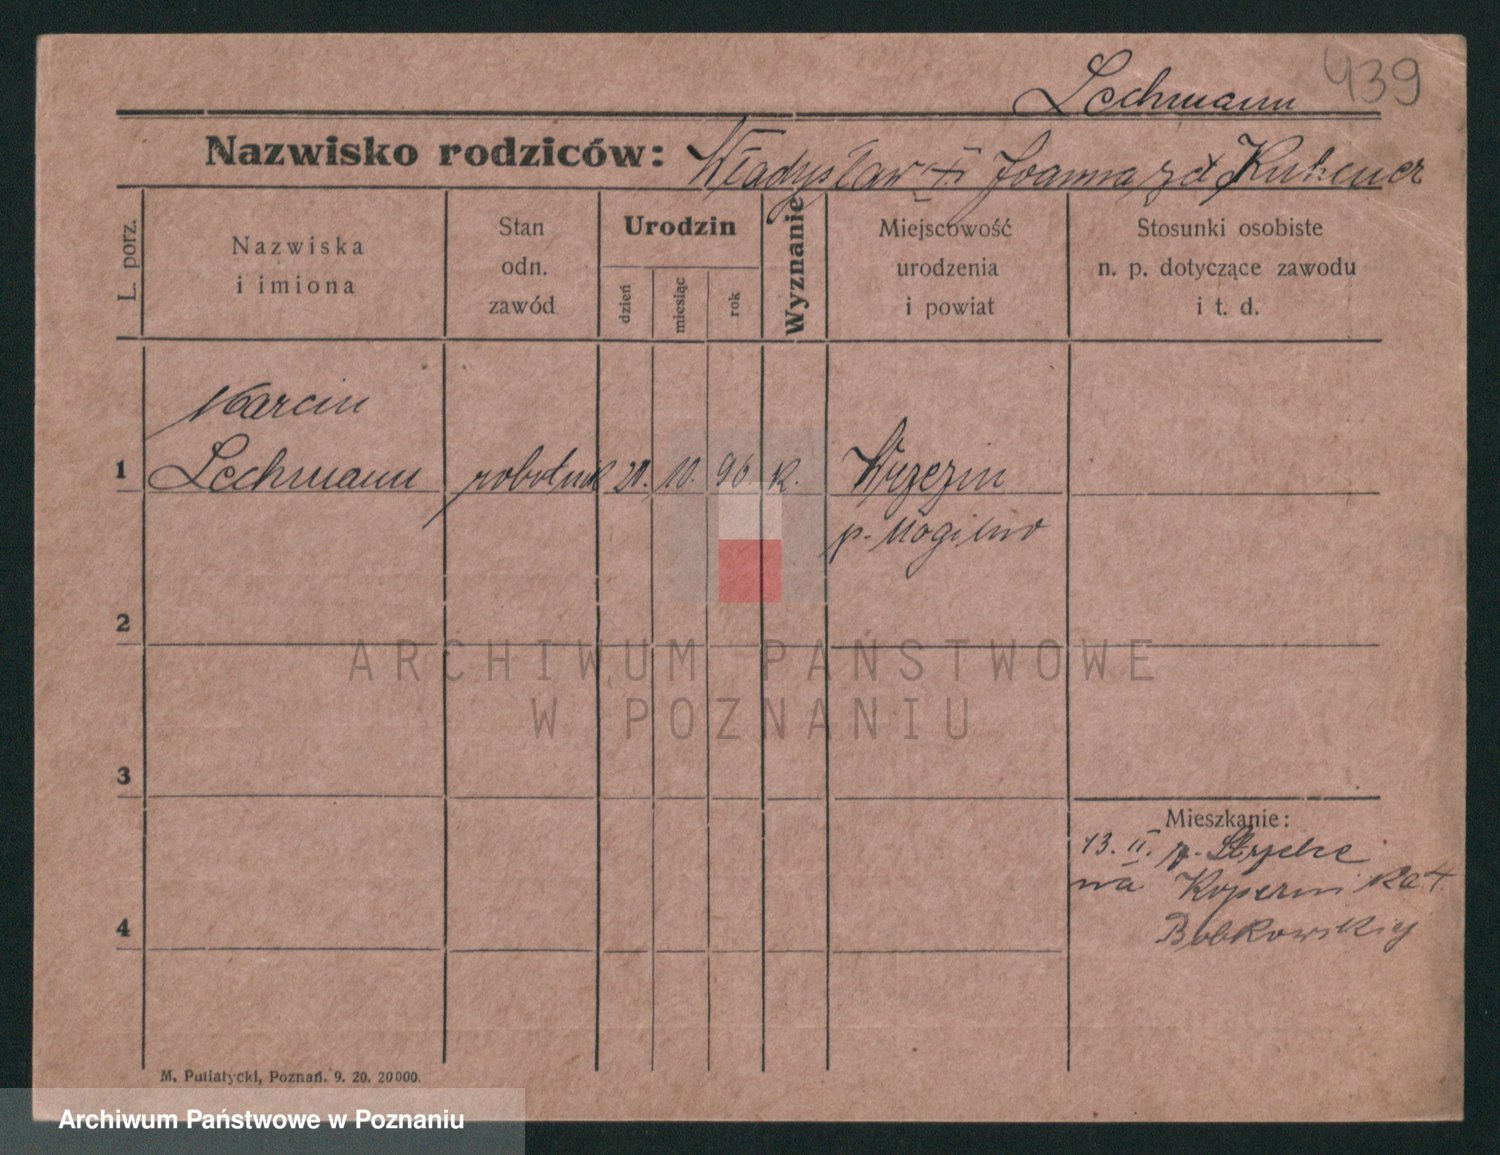 439
Lechmann
Nazwisko rodziców: Władysław i Joanna zd
L. porz.
Nazwiska
i imiona
Stan
odn.
zawód
Urodzin
dzień
miesiąc
rok
Wyznanie
Miejscowość
urodzenia
i powiat
Stosunki osobiste
n. p. dotyczące zawodu
i t. d.
Marcin
1 Lechmann robotnik 20. 10. 96 k.
p. Mogilno
2
3
4
ARCHIWUM PAŃSTWOWE
W POZNANIU
Mieszkanie:
13. II. p.
na Kopernika 4
Bobkowskiej
M. Putiatycki, Poznań. 9. 20. 20000.
Archiwum Państwowe w Poznaniu